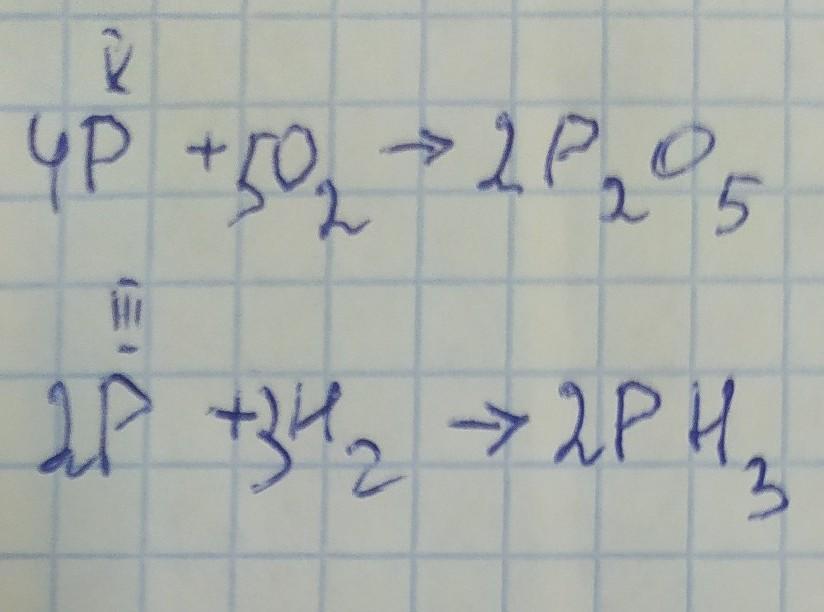 V
4P + 5O₂ → 2P₂O₅
III
2P + 3H₂ → 2PH₃